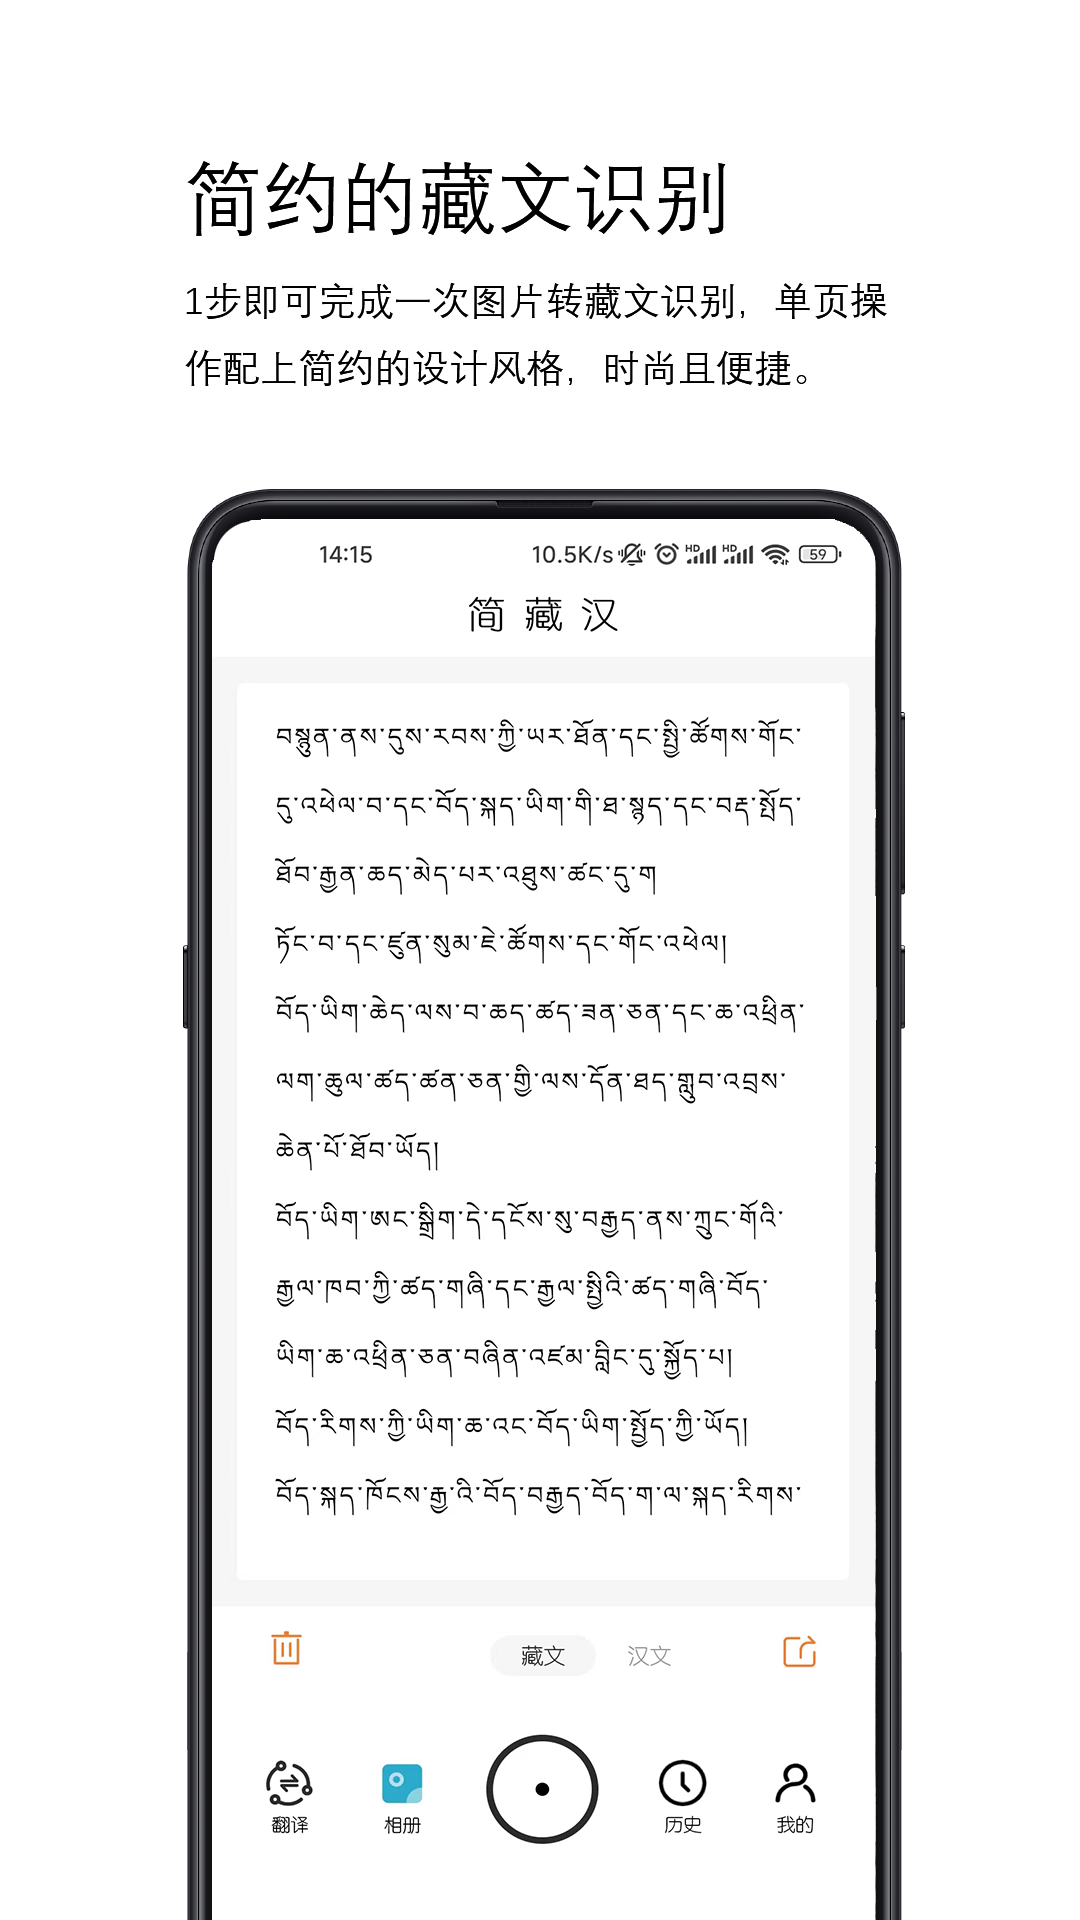 简约的藏文识别
1步即可完成一次图片转藏文识别，单页操
作配上简约的设计风格，时尚且便捷。
14:15 10.5K/s HD HD 59
简藏汉
བསྟུན་ནས་དུས་རབས་ཀྱི་ཡར་ཐོན་དང་སྤྱི་ཚོགས་གོང་
དུ་འཕེལ་བ་དང་བོད་སྐད་ཡིག་གི་ཐ་སྙད་དང་བརྡ་སྤྲོད་
ཐོབ་རྒྱན་ཆད་མེད་པར་འཐུས་ཚང་དུ་ག
ཏོང་བ་དང་ཛུན་སུམ་ཇེ་ཚོགས་དང་གོང་འཕེལ།
བོད་ཡིག་ཆེད་ལས་བ་ཆད་ཚད་ཟན་ཅན་དང་ཆ་འཕྲིན་
ལག་ཆུལ་ཚད་ཚན་ཅན་གྱི་ལས་དོན་ཐད་གྲུབ་འབྲས་
ཆེན་པོ་ཐོབ་ཡོད།
བོད་ཡིག་ཨང་སྒྲིག་དེ་དངོས་སུ་བརྒྱད་ནས་ཀྲུང་གོའི་
རྒྱལ་ཁབ་ཀྱི་ཚད་གཞི་དང་རྒྱལ་སྤྱིའི་ཚད་གཞི་བོད་
ཡིག་ཆ་འཕྲིན་ཅན་བཞིན་འཛམ་གླིང་དུ་སྐྱོད་པ།
བོད་རིགས་ཀྱི་ཡིག་ཆ་འང་བོད་ཡིག་སྤྱོད་ཀྱི་ཡོད།
བོད་སྐད་ཁོངས་རྒྱ་འི་བོད་བརྒྱད་བོད་ག་ལ་སྐད་རིགས་
藏文 汉文
翻译 相册 历史 我的